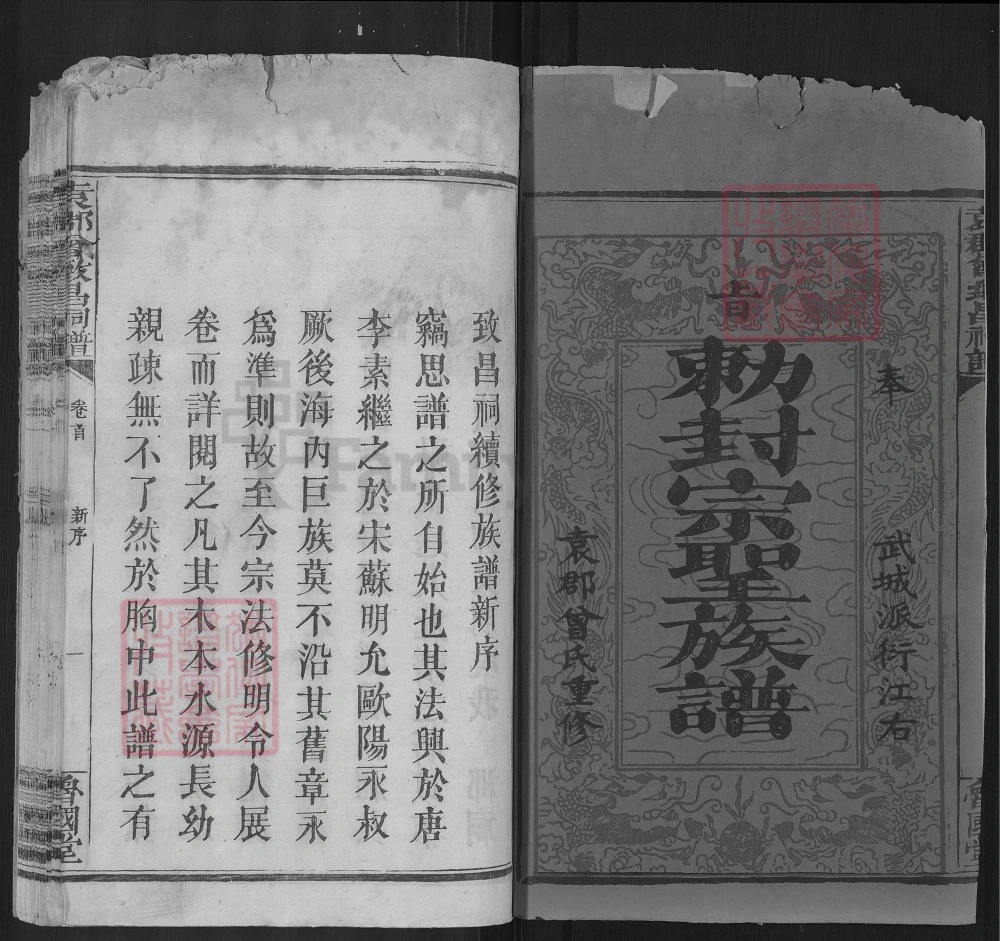 旨
奉
武城派衍江右
勅封宗聖族譜
袁郡曾氏重修
致昌祠續修族譜新序
竊思譜之所自始也其法興於唐
李素繼之於宋蘇明允歐陽永叔
厥後海內巨族莫不沿其舊章永
爲準則故至今宗法修明令人展
卷而詳閱之凡其木本水源長幼
親疎無不了然於胸中此譜之有
卷首
新序
一
魯國堂